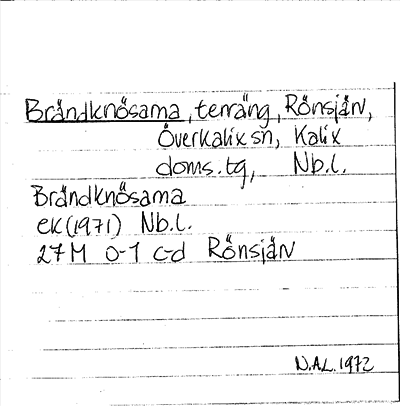 Brändknösarna, terräng, Rönsjän,
Överkalix sn, Kalix
doms.tg, Nb.l.
Brändknösarna
ek(1971) Nb.l.
27M 0-1 c-d Rönsjän
N.Ä.L. 1972